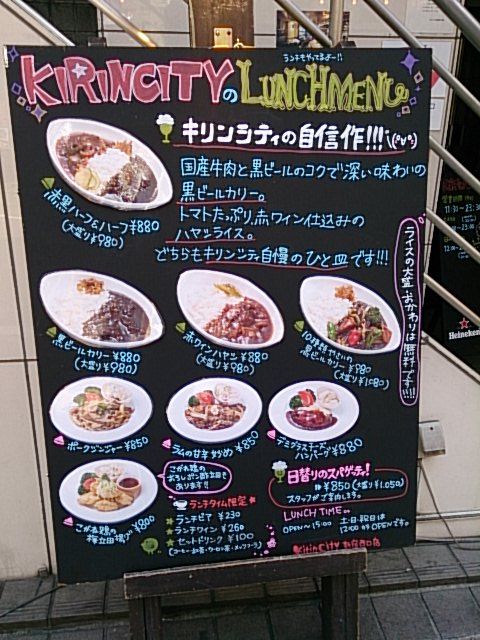 ランチもやってるよー!!
KIRINCITYのLUNCHMENU
キリンシティの自信作!!!
国産牛肉と黒ビールのコクで深い味わいの
黒ビールカリー。
トマトたっぷり、赤ワイン仕込みの
ハヤシライス。
どちらもキリンシティ自慢のひと皿です!!!
赤黒ハーフ&ハーフ ¥880
(大盛り¥980)
ライスの大盛・おかわりは無料です!!!
黒ビールカリー ¥880
(大盛り ¥980)
赤ワインハヤシ ¥880
(大盛り ¥980)
10種野やさいの
黒ビールカリー ¥980
(大盛り ¥1,080)
ポークジンジャー ¥850
ラムの甘辛炒め ¥850
デミグラスチーズ
ハンバーグ ¥880
こがね鶏の
おろしポン酢立田も
あります!!
こがね鶏の
梅立田揚げ ¥800
ランチタイム限定
ランチビア ¥230
ランチワイン ¥260
セットドリンク ¥100
(コーヒー・紅茶・ウーロン茶・メッツコーラ)
日替りのスパゲッティ!
¥850 (大盛り ¥1,050)
スタッフがご案内します。
LUNCH TIME
OPEN~15:00
土・日・祝日は
12:00がOPENです。
Kirin City
営業時間
11:30~23:30
Heineken